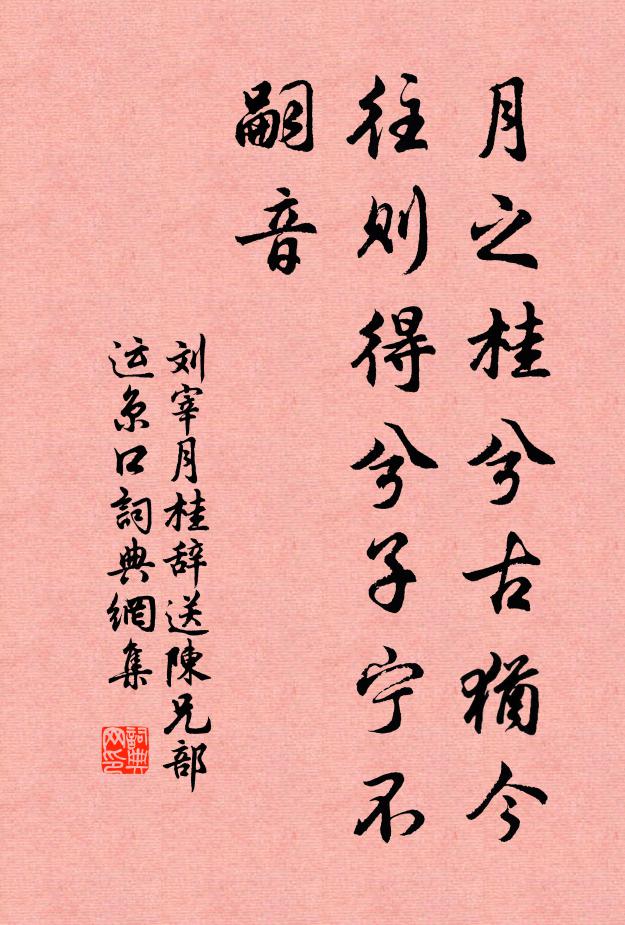 月之桂兮古犹今
往则得兮子宁不
嗣音
刘宰月桂辞送陳兄部
运京口詞典網集
詞典
网印